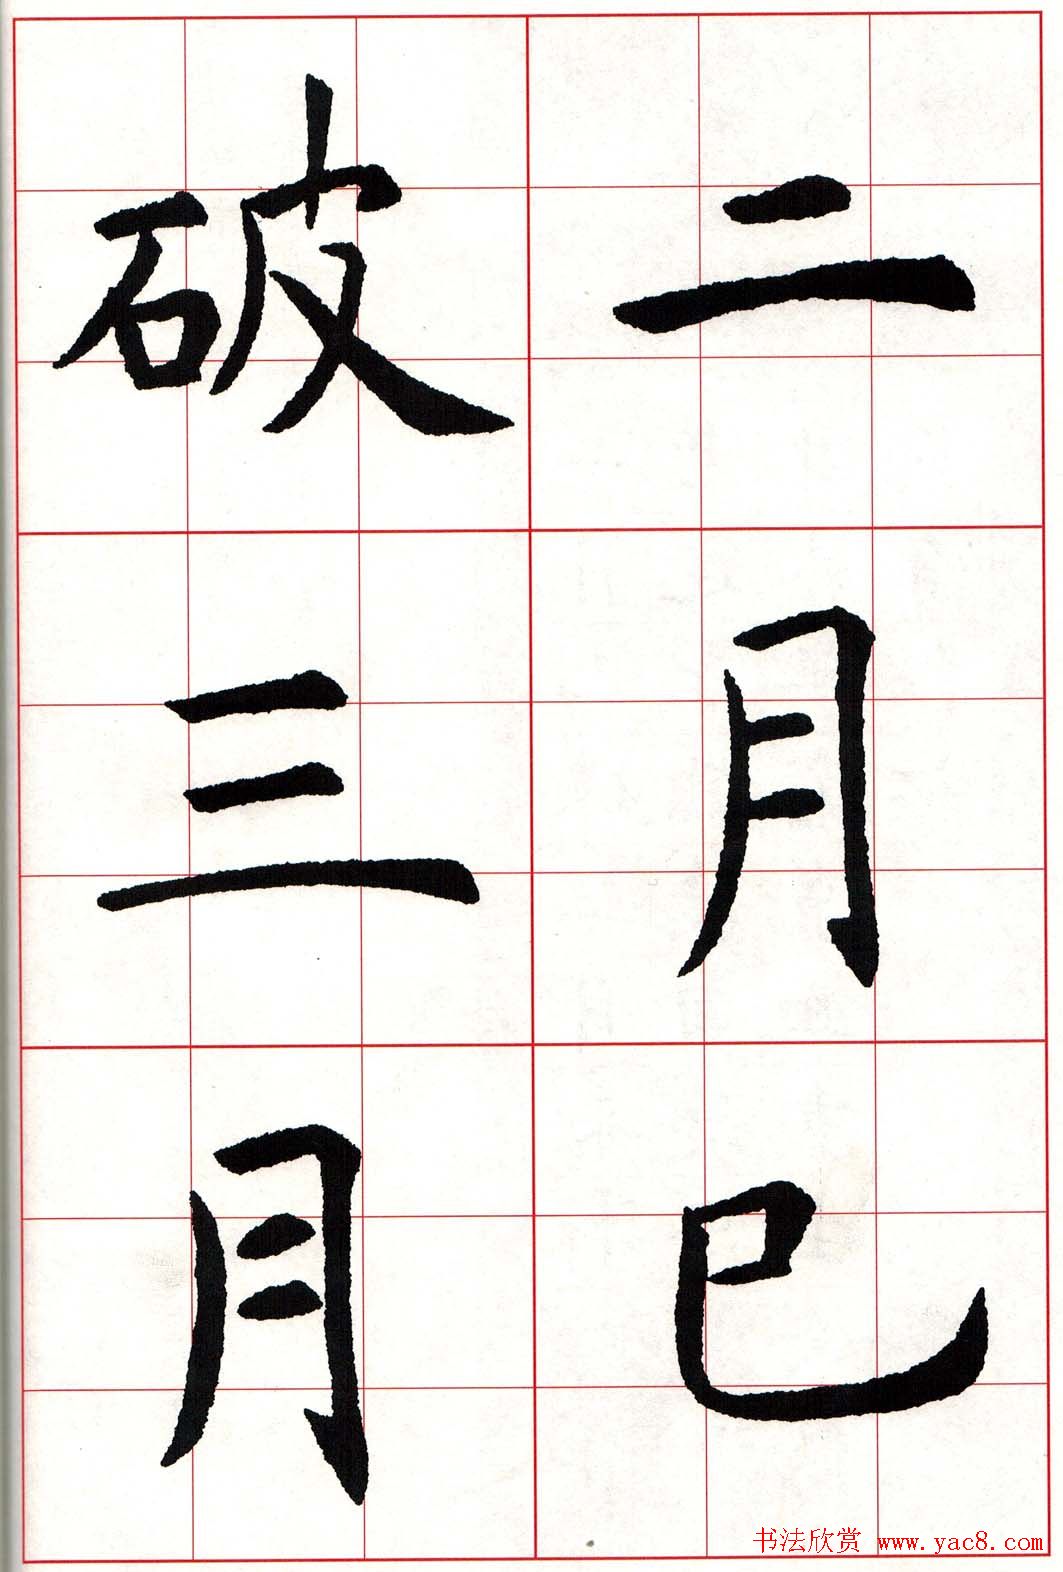 二月已
破三月
书法欣赏 www.yac8.com